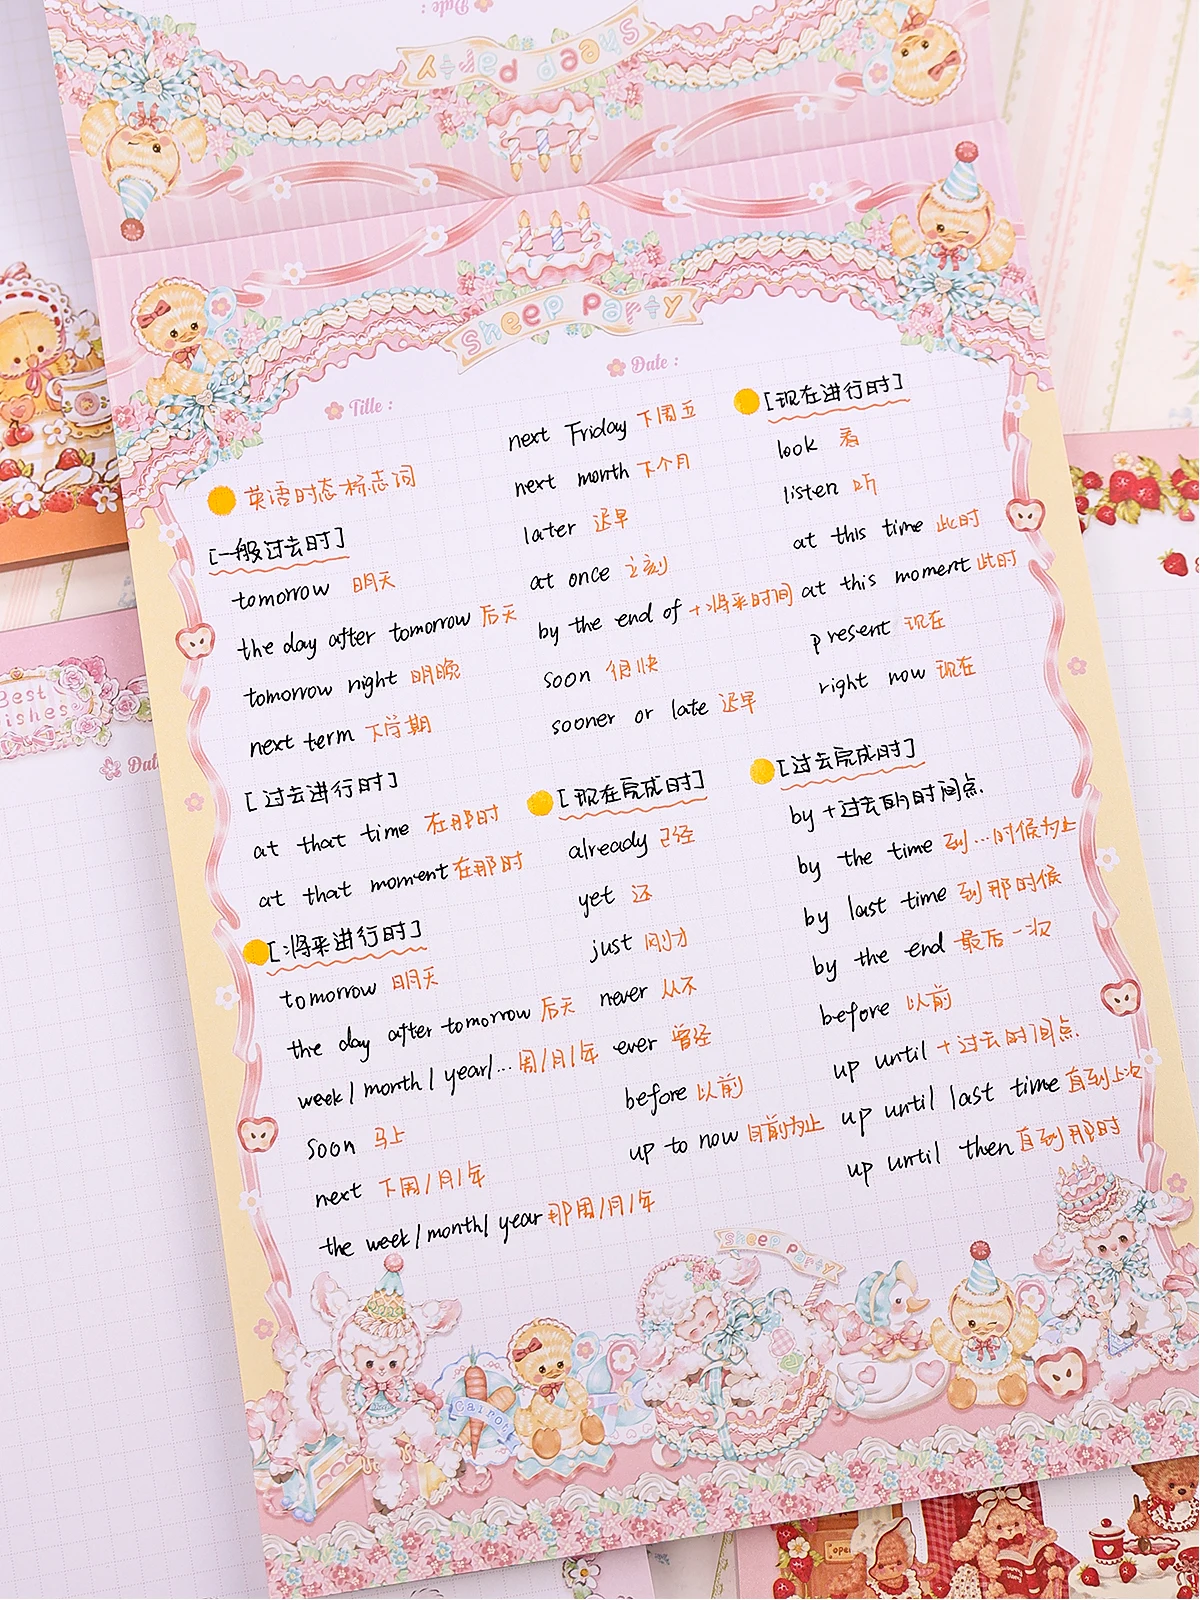 Date :
Sheep Party
Sheep Party
Title :
Date :
英语时态标志词
[一般过去时]
tomorrow 明天
the day after tomorrow 后天
tomorrow night 明晚
next term 下学期
[过去进行时]
at that time 在那时
at that moment 在那时
[将来进行时]
tomorrow 明天
the day after tomorrow 后天
week/month/year/... 周/月/年
soon 马上
next 下周/月/年
the week/month/year 那周/月/年
next Friday 下周五
next month 下个月
later 迟早
at once 立刻
by the end of +将来时间
soon 很快
sooner or late 迟早
[现在完成时]
already 已经
yet 还
just 刚才
never 从不
ever 曾经
before 以前
up to now 目前为止
[现在进行时]
look 看
listen 听
at this time 此时
at this moment 此时
present 现在
right now 现在
[过去完成时]
by +过去的时间点.
by the time 到...时候为止
by last time 到那时候
by the end 最后一次
before 以前
up until +过去时间点.
up until last time 直到上次
up until then 直到那时
Sheep Party
Carrot
Best
Wishes
open